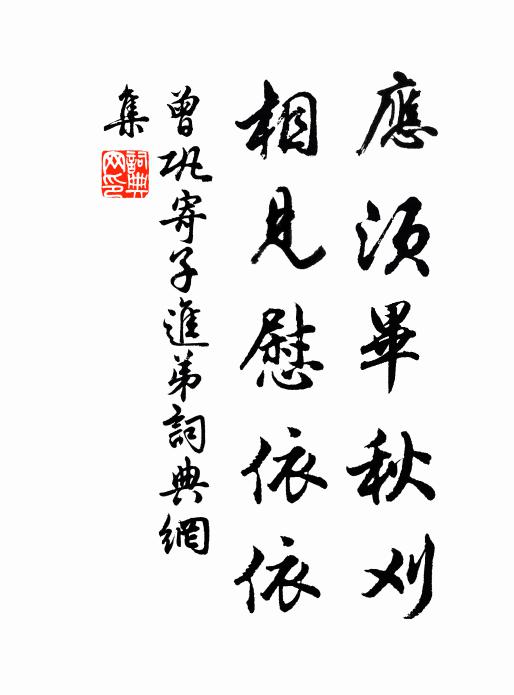 應須畢秋刈
相見慰依依
曾巩寄子進弟詞典網
集
詞典
网印